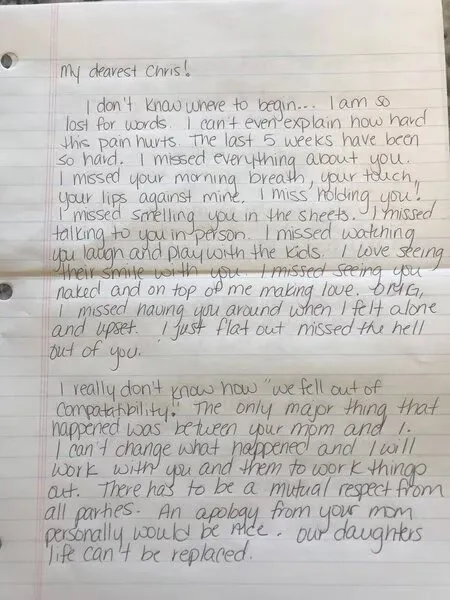 My dearest Chris!
I don't know where to begin... I am so
lost for words. I can't even explain how hard
this pain hurts. The last 5 weeks have been
so hard. I missed everything about you.
I missed your morning breath, your touch,
your lips against mine. I miss holding you!
I missed smelling you in the sheets. I missed
talking to you in person. I missed watching
you laugh and play with the kids. I love seeing
their smile with you. I missed seeing you
naked and on top of me making love. OMG,
I missed having you around when I felt alone
and upset. I just flat out missed the hell
out of you.
I really don't know how "we fell out of
compatatibility." The only major thing that
happened was between your mom and I.
I can't change what happened and I will
work with you and them to work things
out. There has to be a mutual respect from
all parties. An apology from your mom
personally would be nice. Our daughters
life can't be replaced.